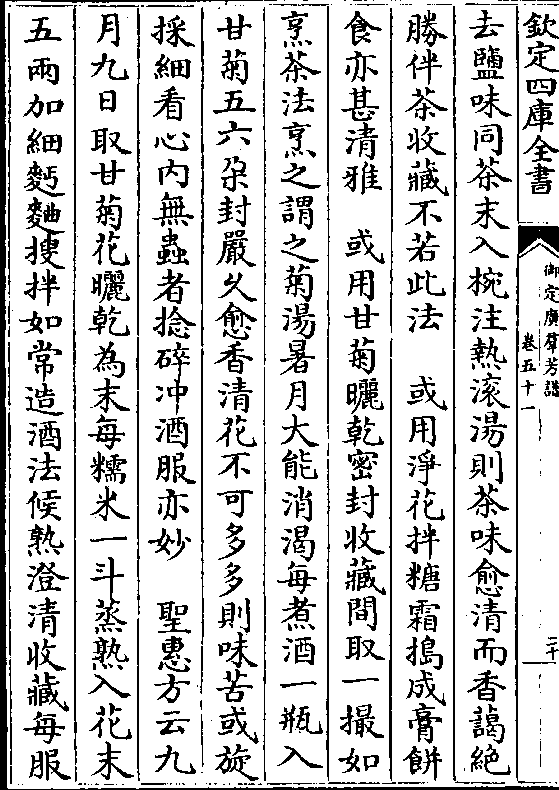 欽定四庫全書
御定廣羣芳譜
卷五十一
三十
去鹽味同茶末入椀注熱滚湯則茶味愈清而香藹絶
勝伴茶收藏不若此法　或用淨花拌糖霜搗成膏餅
食亦甚清雅　或用甘菊曬乾密封收藏間取一撮如
烹茶法烹之謂之菊湯暑月大能消渴每煮酒一瓶入
甘菊五六朶封嚴久愈香清花不可多多則味苦或旋
採細看心内無蟲者捻碎冲酒服亦妙　聖惠方云九
月九日取甘菊花曬乾為末每糯米一斗蒸熟入花末
五兩加細麪麯搜拌如常造酒法候熟澄清收藏每服